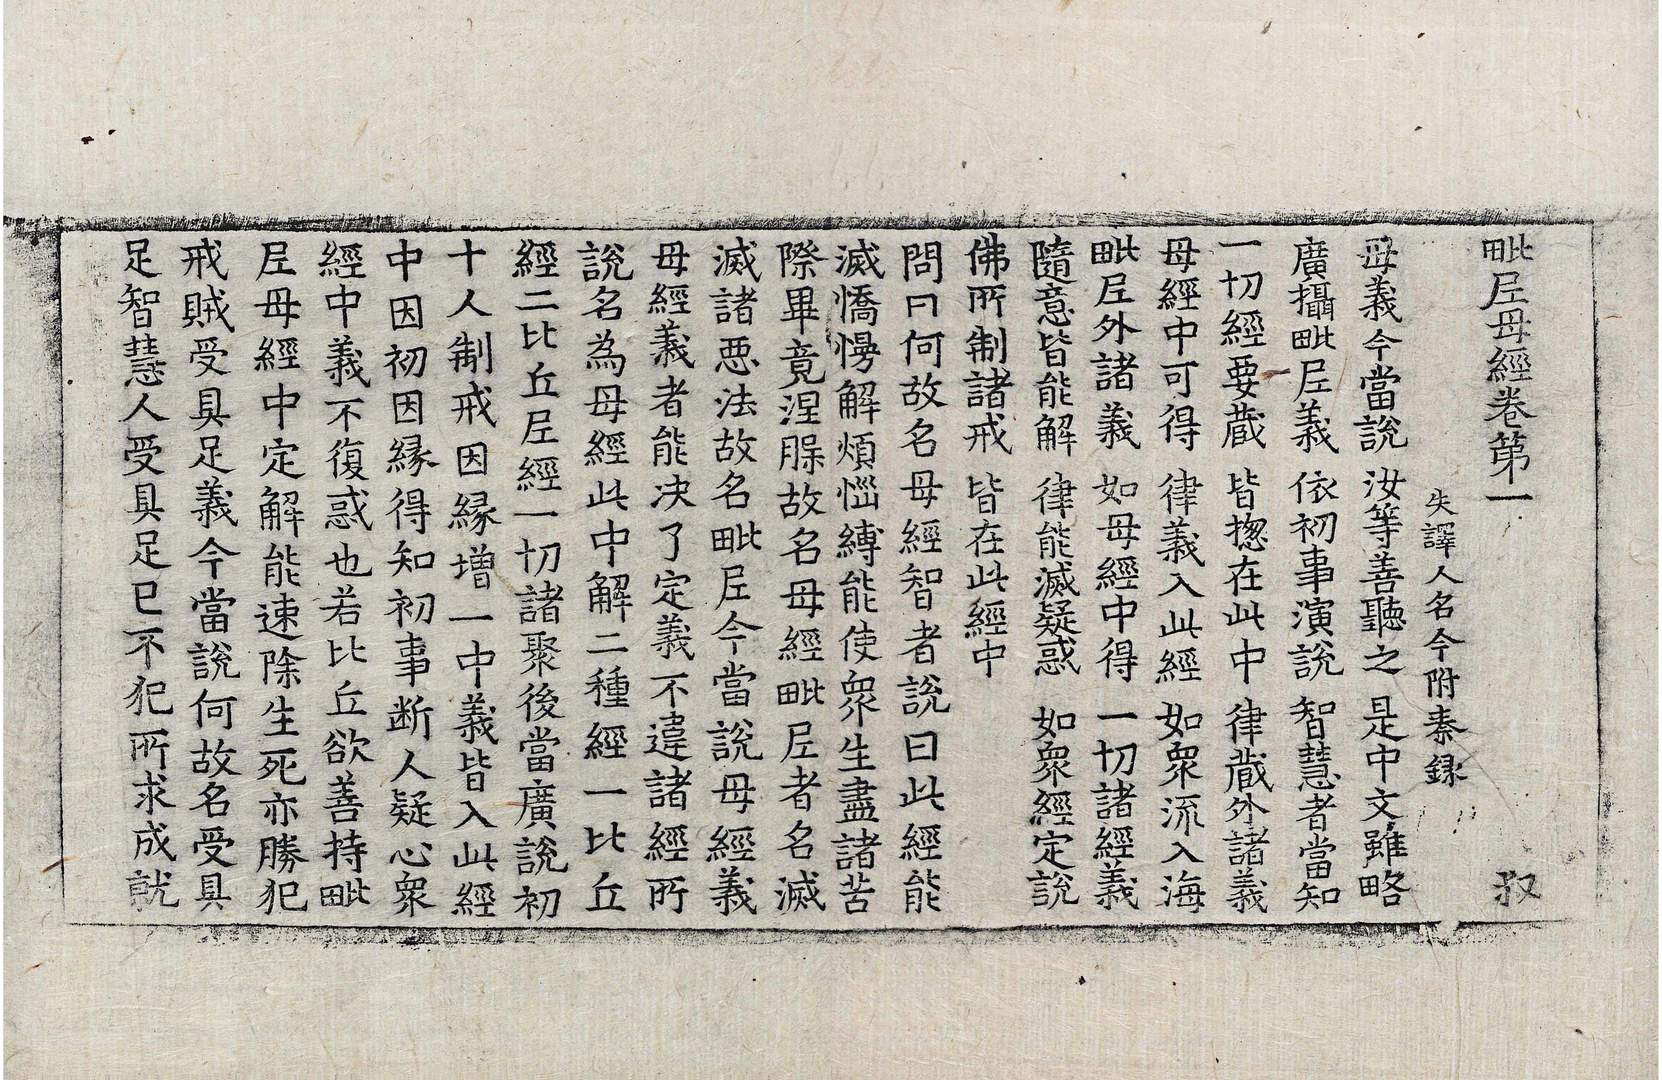 毗尼母經卷第一 䭾
失譯人名今附秦録
母義今當說 汝等善聽之 是中文雖略
廣攝毗尼義 依初事演說 智慧者當知
一切經要藏 皆揔在此中 律藏外諸義
母經中可得 律義入此經 如衆流入海
毗尼外諸義 如母經中得 一切諸經義
隨意皆能解 律能滅疑惑 如衆經定說
佛所制諸戒 皆在此經中
問曰何故名母經智者說曰此經能
滅憍慢解煩惱縛能使衆生盡諸苦
際畢竟涅脲故名母經毗尼者名滅
滅諸惡法故名毗尼今當說母經義
母經義者能决了定義不違諸經所
說名為母經此中解二種經一比丘
經二比丘尼經一切諸聚後當廣說初
十人制戒因縁增一中義皆入此經
中因初因縁得知初事断人疑心衆
經中義不復惑也若比丘欲善持毗
尼母經中定解能速除生死亦勝犯
戒賊受具足義今當說何故名受具
足智慧人受具足已不犯所求成就